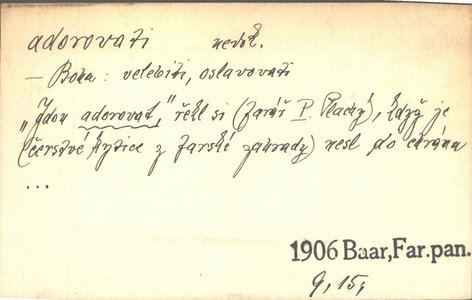 adorovati nedok.
— Boha : velebiti, oslavovati
„Jdou adorovat," řekl si (farář P. Plachý), když je
(čerstvé kytice z farské zahrady) nesl do chrámu
...
1906 Baar, Far. pan.
9, 15,